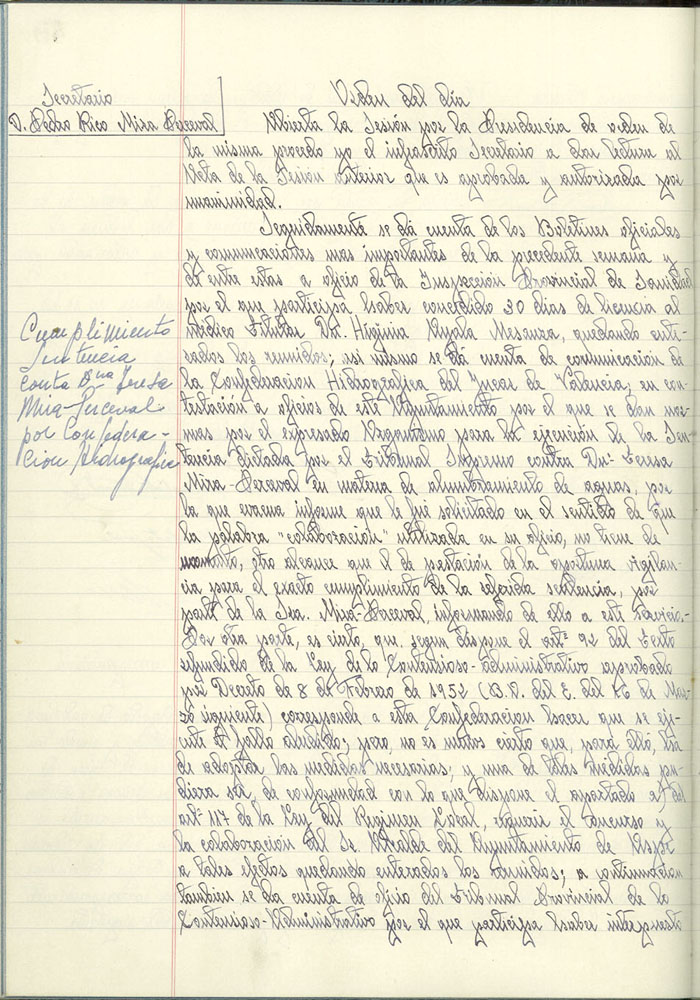 Secretario
D. Pedro Rico Mira-Perceval
Cumplimiento
sentencia
contra Dña Teresa
Mira-Perceval
por Confedera-
ción Hidrografica
Orden del día
Abierta la Sesión por la Presidencia de orden de
la misma procedo yo el infrascrito Secretario a dar lectura al
Acta de la Sesión anterior que es aprobada y autorizada por
unanimidad.
Seguidamente se dá cuenta de los Boletines oficiales
y comunicaciones mas importantes de la precedente semana y
de entre estas a oficio de la Inspección Provincial de Sanidad
por el que participa haber concedido 30 dias de licencia al
médico titular Dn. Higinio Ayala Meseuza, quedando ente-
rados los reunidos; asi mismo se dá cuenta de comunicación de
la Confederacion Hidrografica del Jucar de Valencia, en con-
testación a oficios de este Ayuntamiento por el que se dan nor-
mas por el expresado Organismo para la ejecución de la Sen-
tencia dictada por el Tribunal Supremo contra Dña. Teresa
Mira-Perceval en materia de alumbramiento de aguas, por
la que evacua informe que le fué solicitado en el sentido de que
la palabra "colaboración" utilizada en su oficio, no tiene de
momento, otro alcance que el de prestación de la oportuna vigilan-
cia para el exacto cumplimiento de la referida sentencia, por
parte de la Sra. Mira-Perceval, informando de ello a este servicio.-
Por otra parte, es cierto, que segun dispone el artº 92 del Texto
refundido de la Ley de lo Contensioso-administrativo aprobado
por Decreto de 8 de Febrero de 1952 (B.O. del E. del 16 de Mar-
zo siguiente) corresponde a esta Confederacion hacer que se eje-
cute el fallo aludido; pero, no es menos cierto que, para ello, ha
de adoptar las medidas necesarias; y una de tales medidas pu-
diera ser, de conformidad con lo que dispone el apartado a) del
artº 117 de la Ley del Regimen Local, requerir el concurso y
la colaboracion del Sr. Alcalde del Ayuntamiento de Aspe
a tales efectos quedando enterados los reunidos; a continuacion
tambien se da cuenta de oficio del Tribunal Provincial de lo
Contensioso-Administrativo por el que participa haber interpuesto